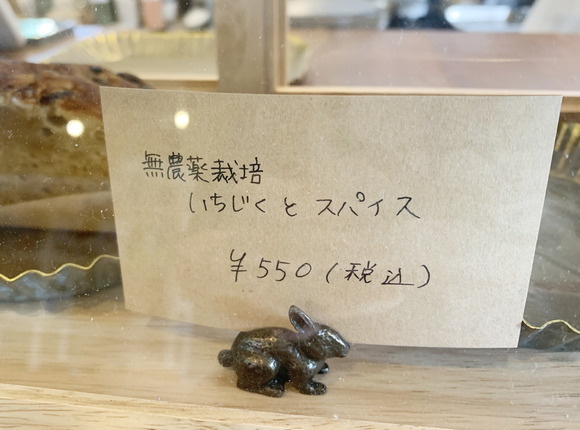 無農薬栽培
いちじくと スパイス
¥550(税込)